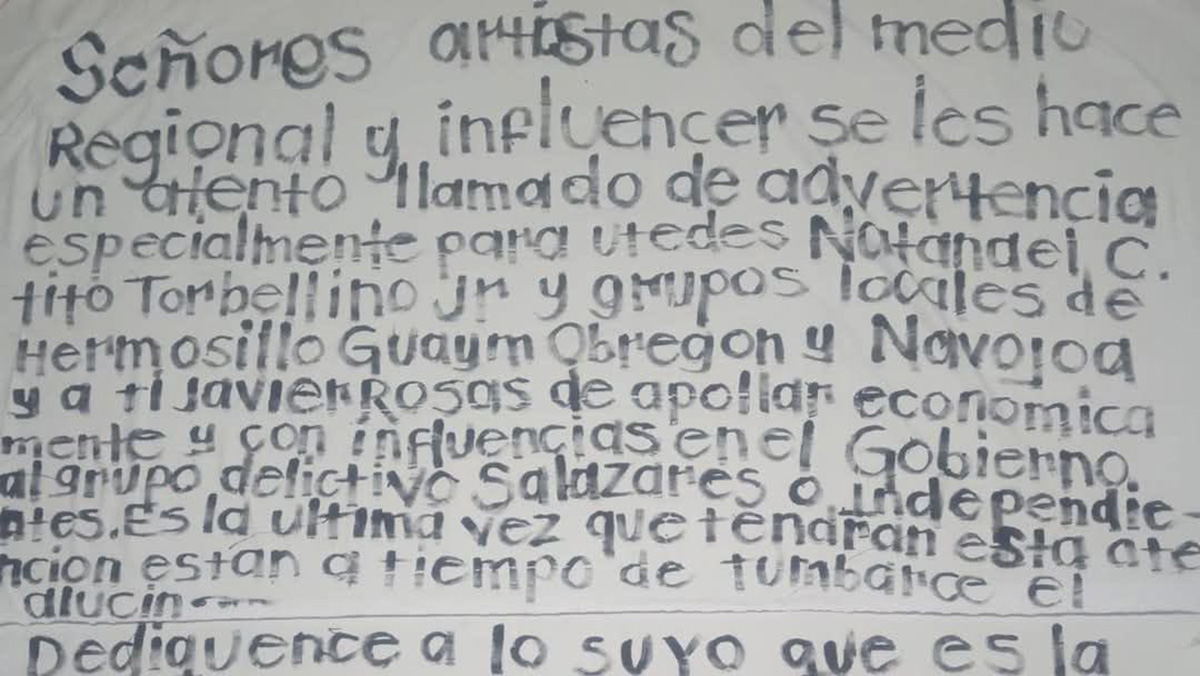 Señores artistas del medio
Regional y influencer se les hace
un atento llamado de advertencia
especialmente para utedes Natanael C.
tito Torbellino jr y grupos locales de
Hermosillo Guaym Obregon y Navojoa
y a ti Javier Rosas de apollar economica
mente y con influencias en el Gobierno.
al grupo delictivo Salazares o independie-
ntes. Es la ultima vez que tendran esta ate
ncion estan a tiempo de tumbarce el
alucin
Dediquence a lo suyo que es la